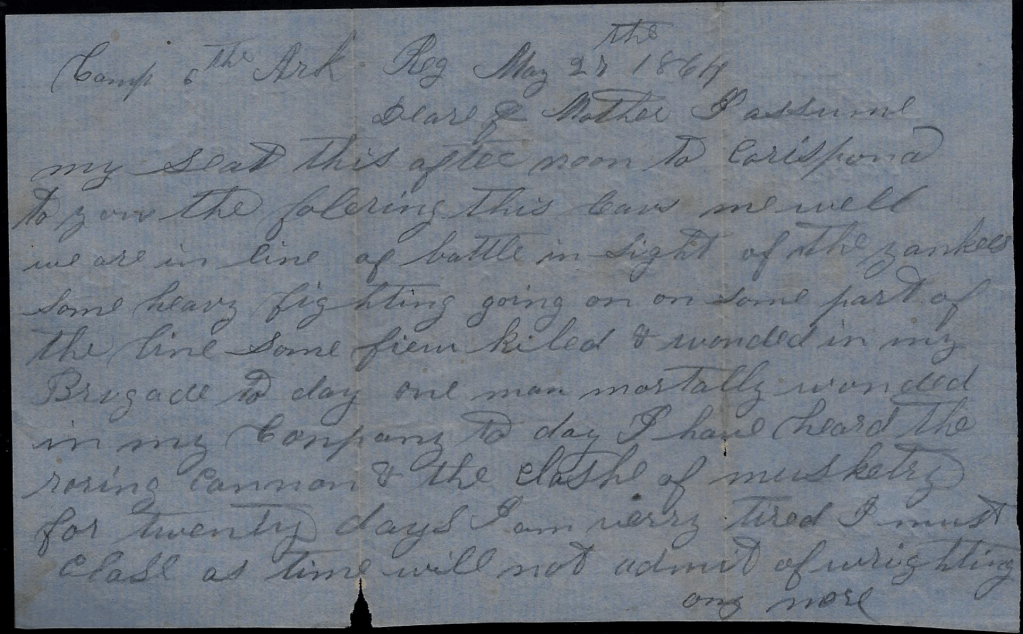 Camp 6th Ark Reg May 27the 1864
Deare Mother I assume
my seat this after noon to Corispond
to you the folering this leavs me well
we are in line of battle in sight of the yankees
some heavy fighting going on on some part of
the line some fiew kiled & wonded in my
Brigade to day one man mortally wonded
in my Conpany to day I have heard the
roring Cannon & the Clashe of musketry
for twenty days I am verry tired I must
Close as time will not admit of wrighting
any more